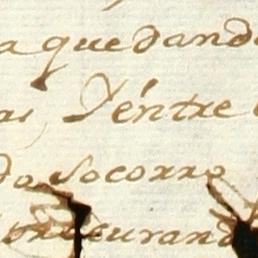 aquedand
as, D'entre
do Socorro
procurand